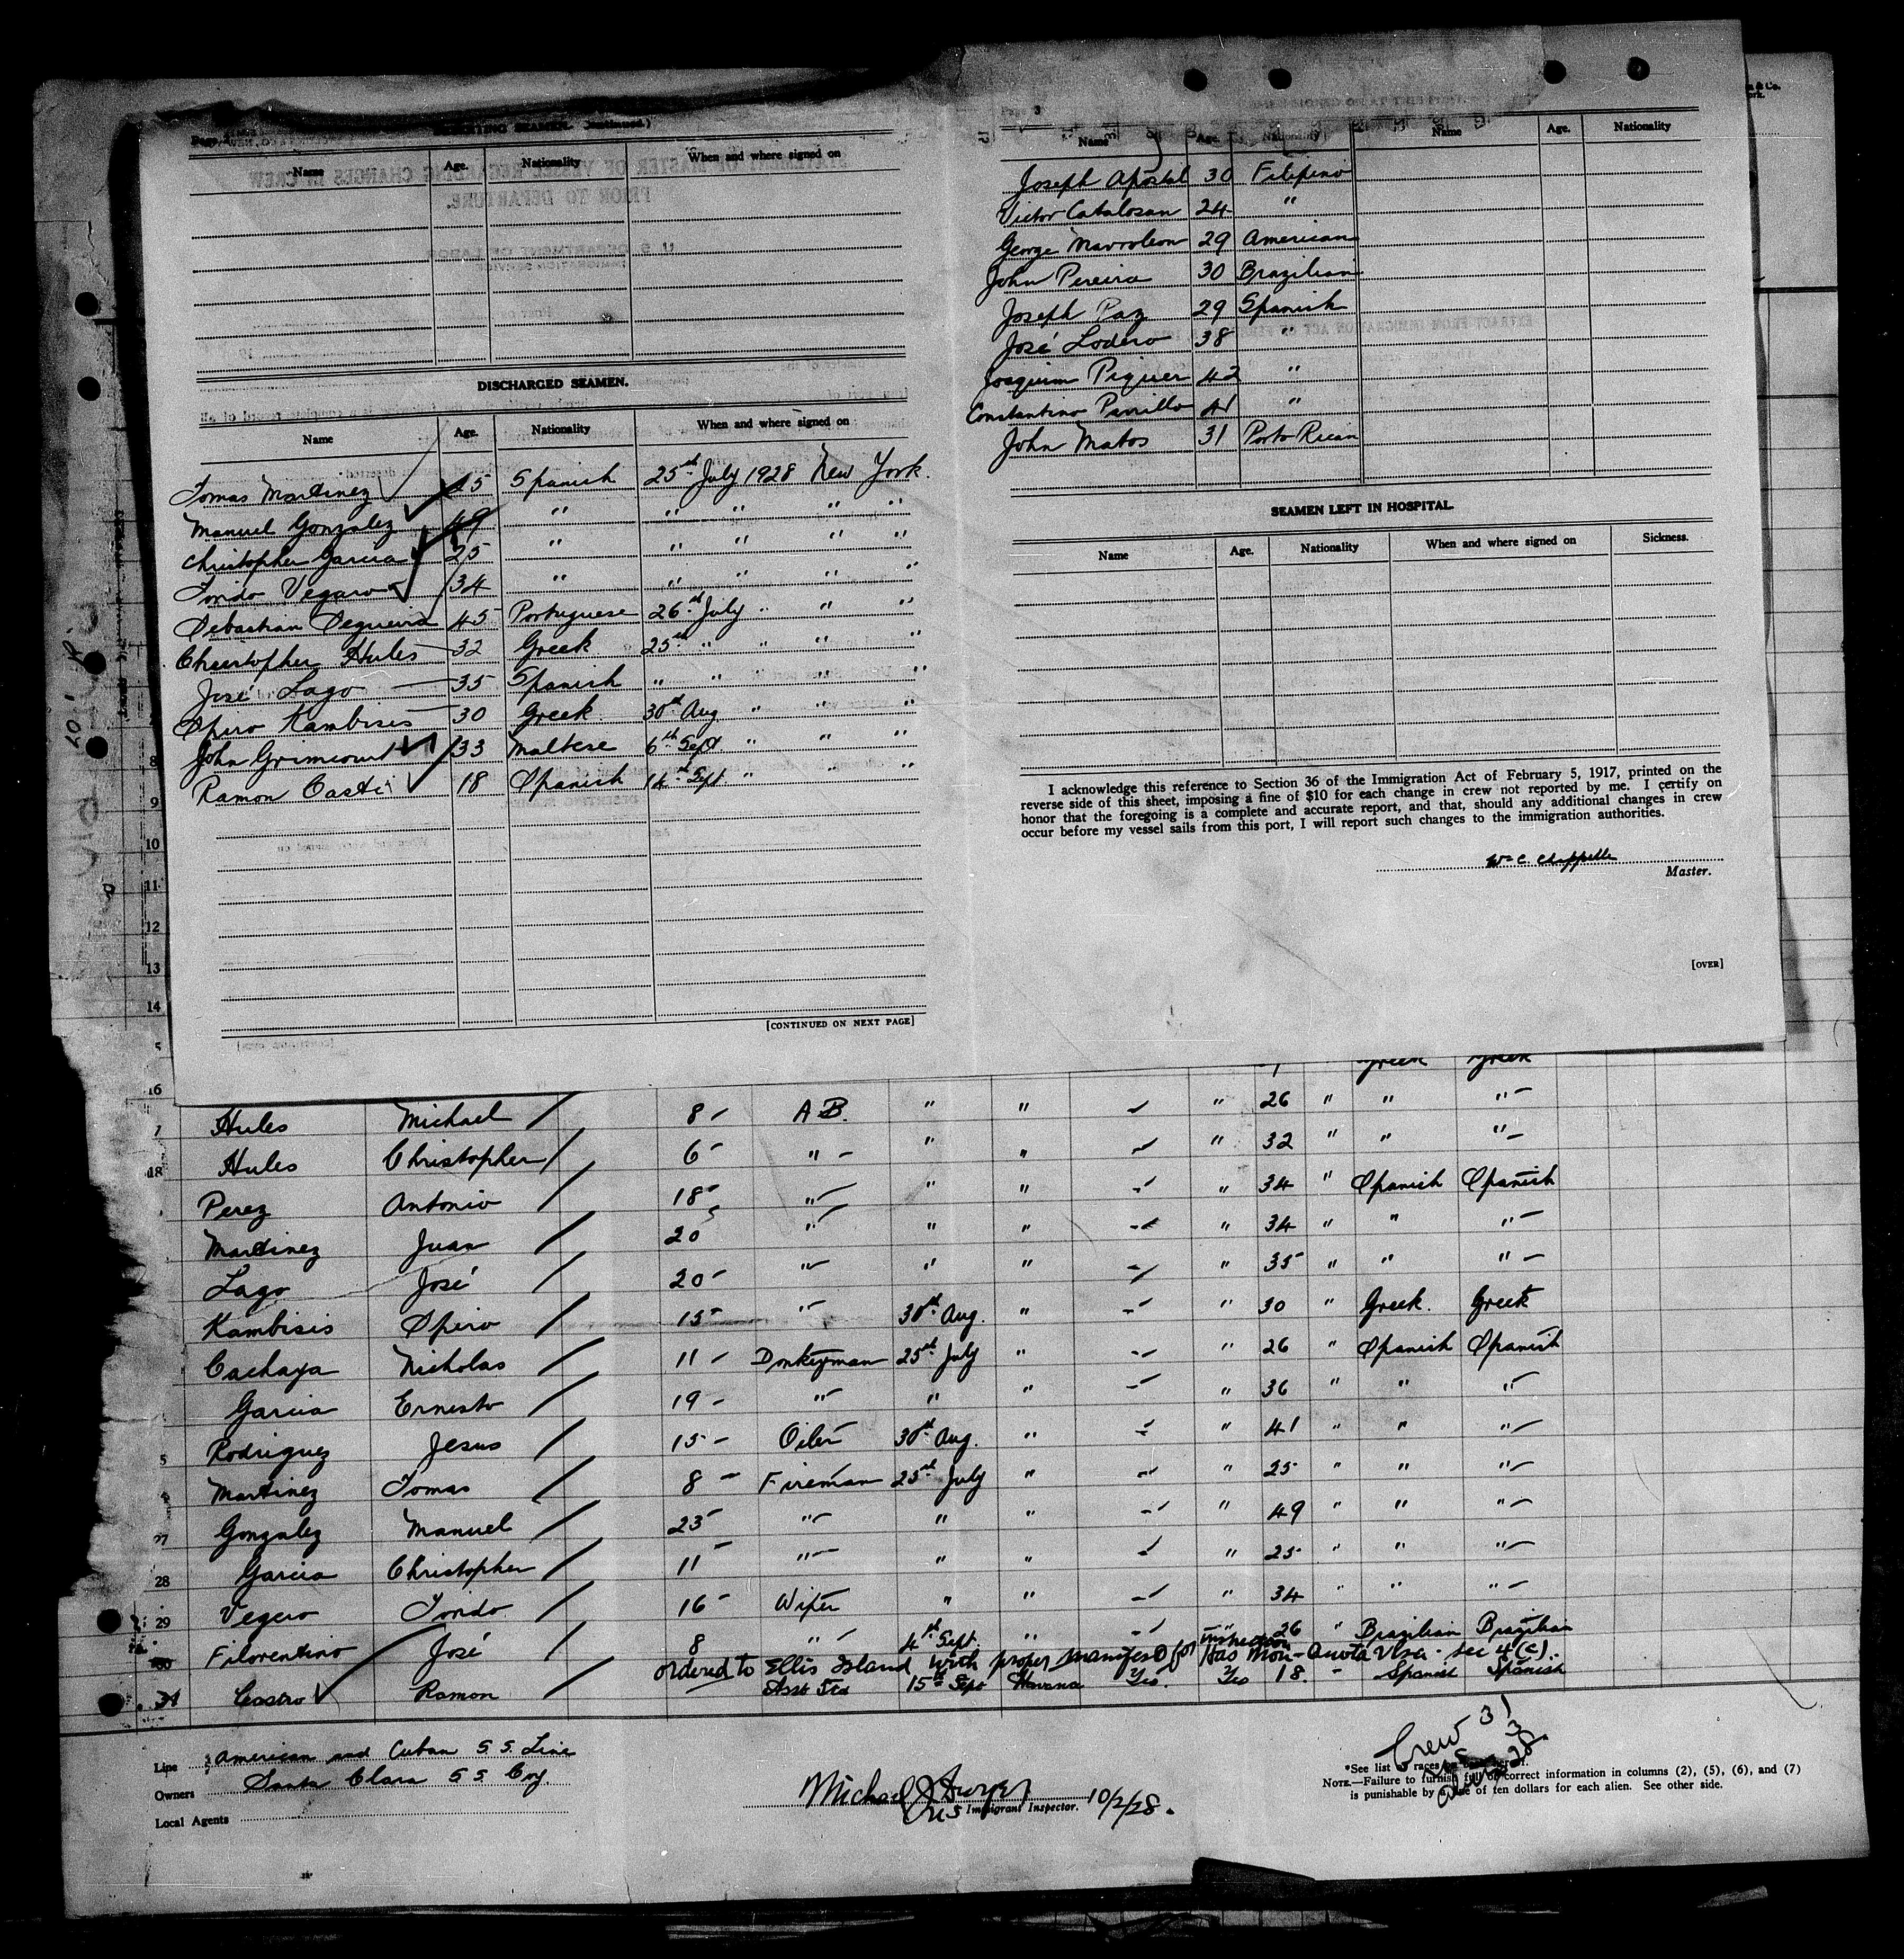 Name Age. Nationality When and where signed on
DISCHARGED SEAMEN.
Name Age. Nationality When and where signed on
Tomas Martinez 45 Spanish 25th July 1928 New York.
Manuel Gonzalez 49 " " " " "
Christopher Garcia 25 " " " " "
Tondo Vegaro 34 " " " " "
Sebastian Sequeira 45 Portuguese 26th July " " "
Christopher Hules 32 Greek 25th " " " "
José Lago 35 Spanish " " " "
Spiro Kambisis 30 Greek 30th Aug " " "
John Grimcourt 33 Maltese 6th Sept " " "
Ramon Casti 18 Spanish 14th Sept " "
[CONTINUED ON NEXT PAGE]
Page 3
Name Age. Nationality Name Age. Nationality
Joseph Apostol 30 Filipino
Victor Catalosan 24 "
George Mavroleon 29 American
John Pereira 30 Brazilian
Joseph Paz 29 Spanish
José Lodero 38 "
Joaquim Piquer 42 "
Constantino Parrillo 41 "
John Matos 31 Porto Rican
SEAMEN LEFT IN HOSPITAL.
Name Age. Nationality When and where signed on Sickness.
I acknowledge this reference to Section 36 of the Immigration Act of February 5, 1917, printed on the
reverse side of this sheet, imposing a fine of $10 for each change in crew not reported by me. I certify on
honor that the foregoing is a complete and accurate report, and that, should any additional changes in crew
occur before my vessel sails from this port, I will report such changes to the immigration authorities.
Wm C. Chappelle
Master.
[OVER]
8
9
10
11
12
13
14
5
16 Greek Greek
Hules Michael 8 - A.B. " " " 26 " " "
18 Hules Christopher 6 - " " " " 32 " " "
Perez Antonio 18 - " " " " 34 " Spanish Spanish
Martinez Juan 20 " " " " 34 " " "
Lago José 20 - " " " " 35 " " "
Kambisis Spiro 15 - " 30th Aug. " " 30 " Greek. Greek
Cachaya Nicholas 11 - Donkeyman 25th July " " 26 " Spanish Spanish
Garcia Ernesto 19 - " " " " 36 " " "
Rodriguez Jesus 15 - Oiler 30th Aug. " " 41 " " "
Martinez Tomas 8 - Fireman 25th July " " 25 " " "
27 Gonzalez Manuel 23 " " " " 49 " " "
28 Garcia Christopher 11 - " " " " 25 " " "
29 Vegero Tondo 16 - Wiper " " " 34 " " "
30 Filorentino José 8 " 4th Sept. " 26 " Brazilian Brazilian
ordered to Ellis Island with proper manifest for inspection Has Non-Quota Visa - Sec 4 (c).
31 Castro Ramon Asst Std 15th Sept Havana Yes. Yes 18. - Spanish Spanish
Line American and Cuban S.S. Line
Owners Santa Clara S S Coy.
Local Agents
Michael J Dwyer
U S Immigrant Inspector. 10/2/28.
Crew 31
*See list of races
NOTE.—Failure to furnish full or correct information in columns (2), (5), (6), and (7)
is punishable by a fine of ten dollars for each alien. See other side.